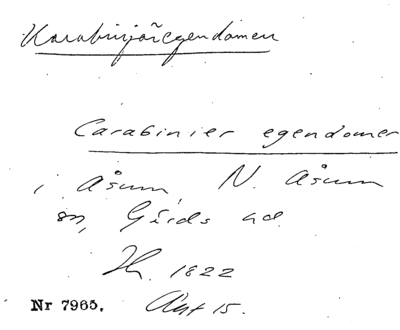 Karabinjäregendomen
Carabinier egendomen
i Åsum, N. Åsum
sn, Gärds hd.
1822
Nr 7965. Akt 15.